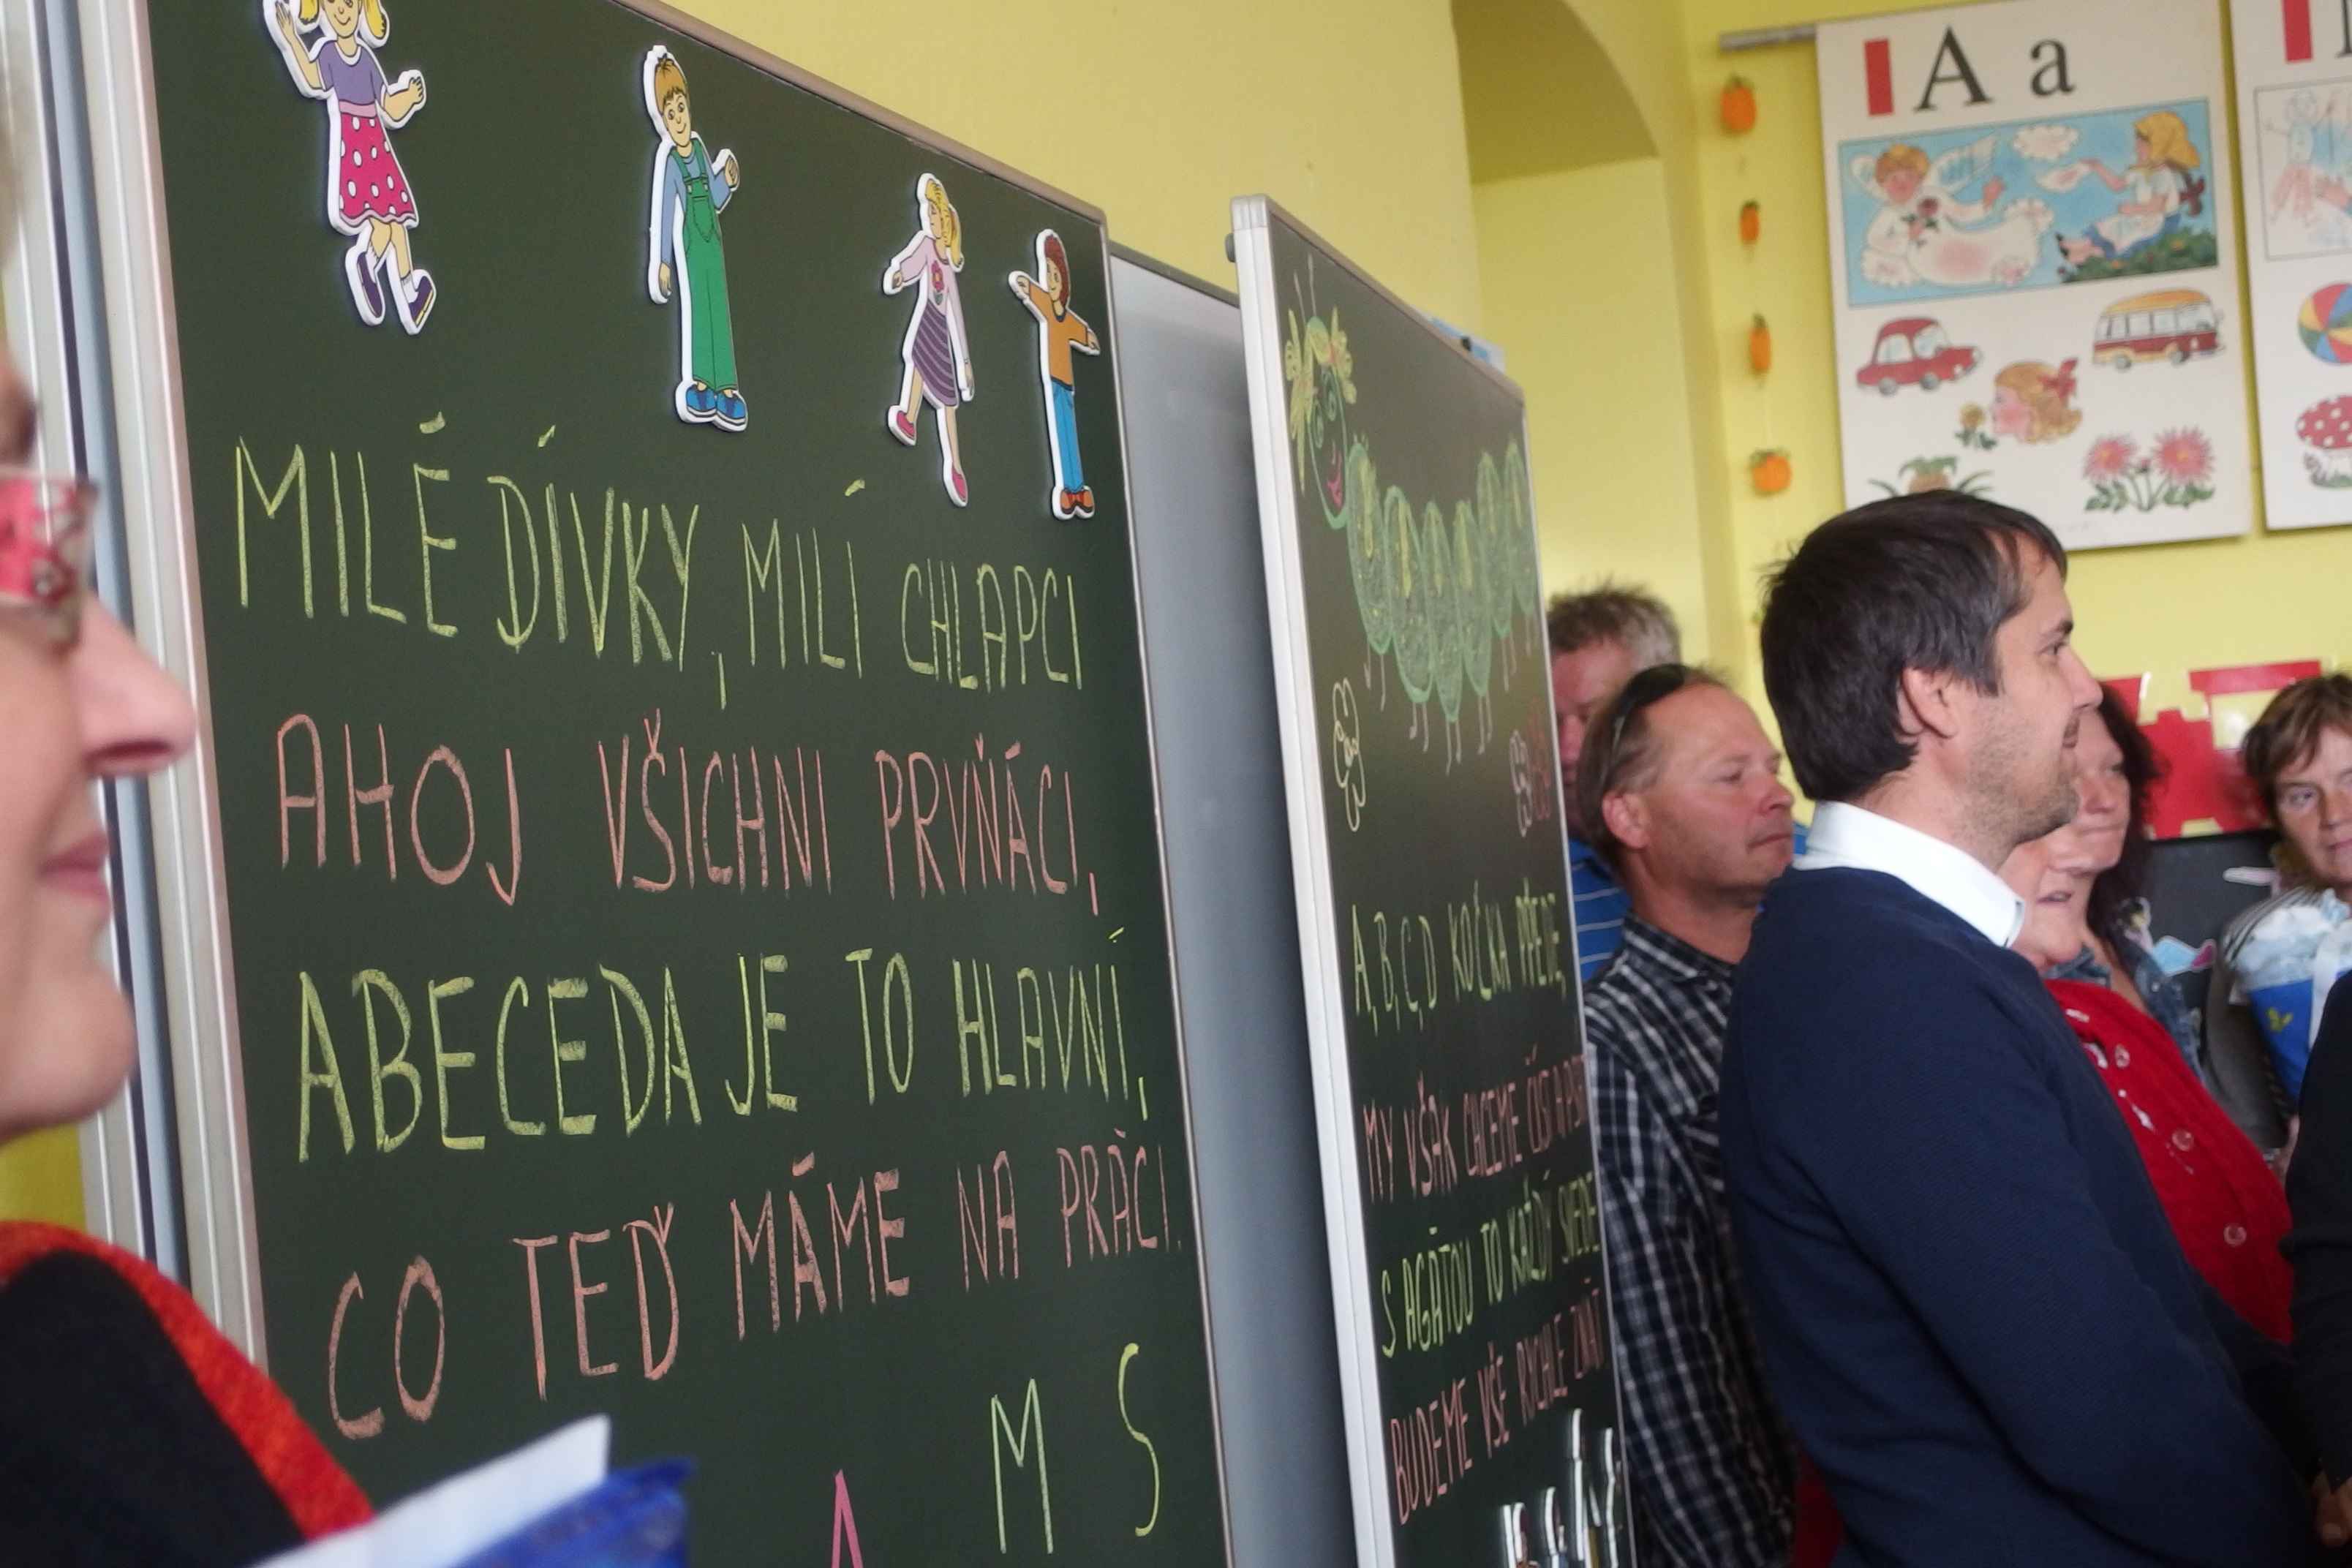 MILÉ DÍVKY, MILÍ CHLAPCI
AHOJ VŠICHNI PRVŇÁCI,
ABECEDA JE TO HLAVNÍ,
CO TEĎ MÁME NA PRÁCI.
M S
A
A, B, C, D KOČKA PŘEDE,
MY VŠAK CHCEME ČÍST A
S AGÁTOU TO KAŽDÝ SVEDE
BUDEME VŠE RYCHLE ZNÁT
A a